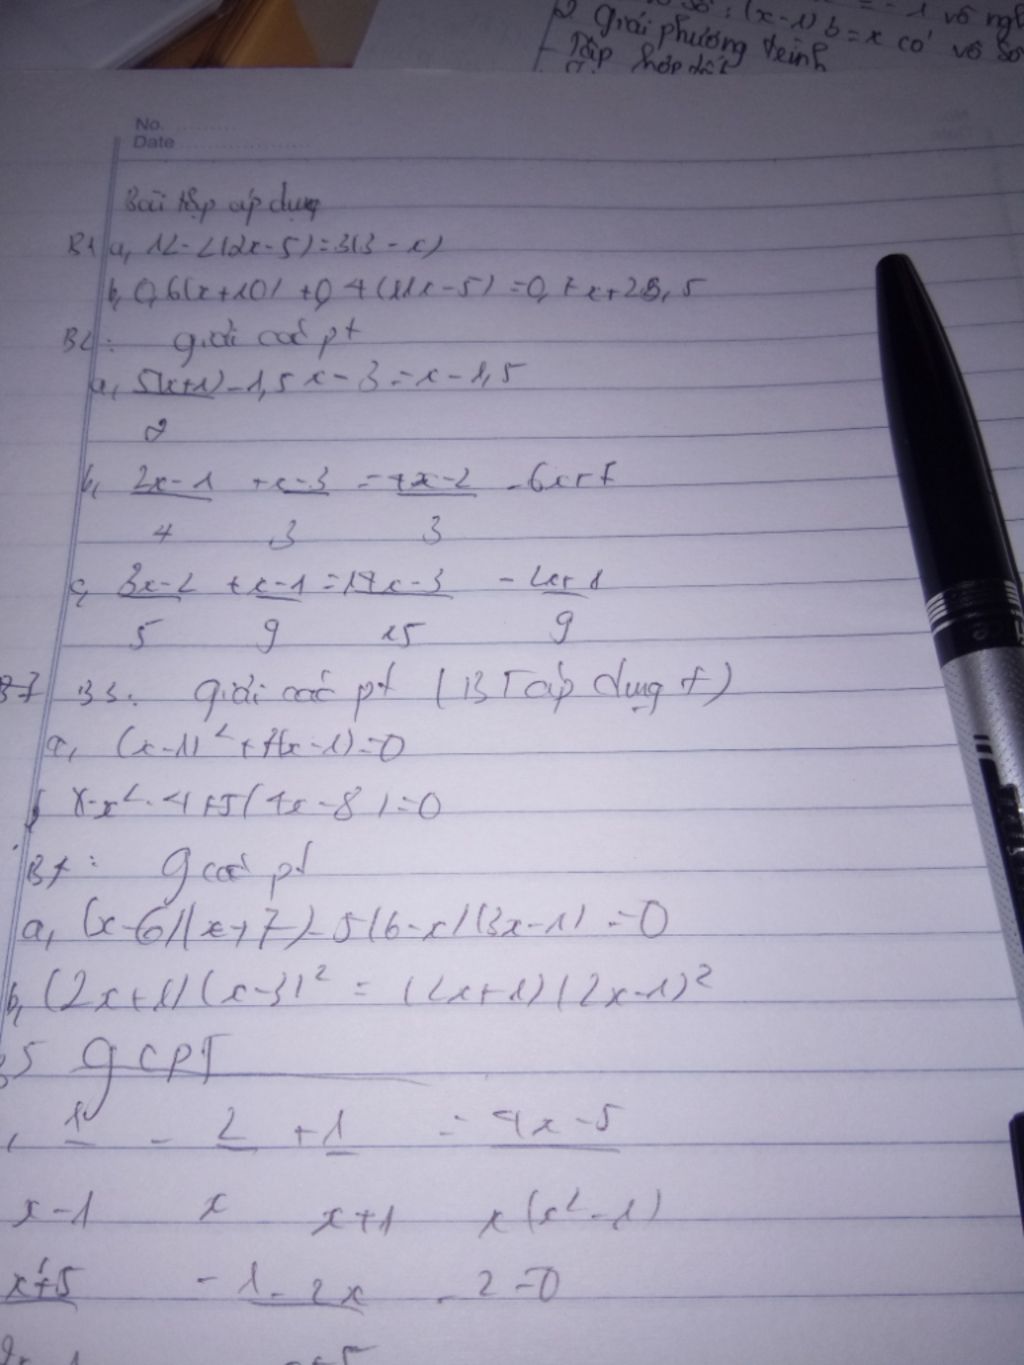 2 Giải phương trình
Tập hợp
No.
Date
Bài tập áp dụng
B1 a, 12-2(2x-5)=3(3-x)
b, 0,6(x+10) +0,4(11x-5) =0,7x+28,5
B2: giải các pt
a, 5(x+1) -1,5x-3=x-1,5
2
b, 2x-1 +x-3 =4x-2 -6x+7
4 3 3
c, 3x-2 +x-1 =14x-3 -2x+1
5 9 15 9
B3: giải các pt (BT áp dụng t)
a, (x-1)² +7(x-1)=0
x²-4+5(4x-8)=0
B4: g các pt
a, (x-6)(x+7)-5(6-x)(3x-1)=0
b, (2x+1)(x-3)² = (2x+1)(2x-1)²
5 GCPT
1 - 2 +1 = 4x-5
x-1 x x+1 x(x²-1)
x+5 - 1-2x -2=0